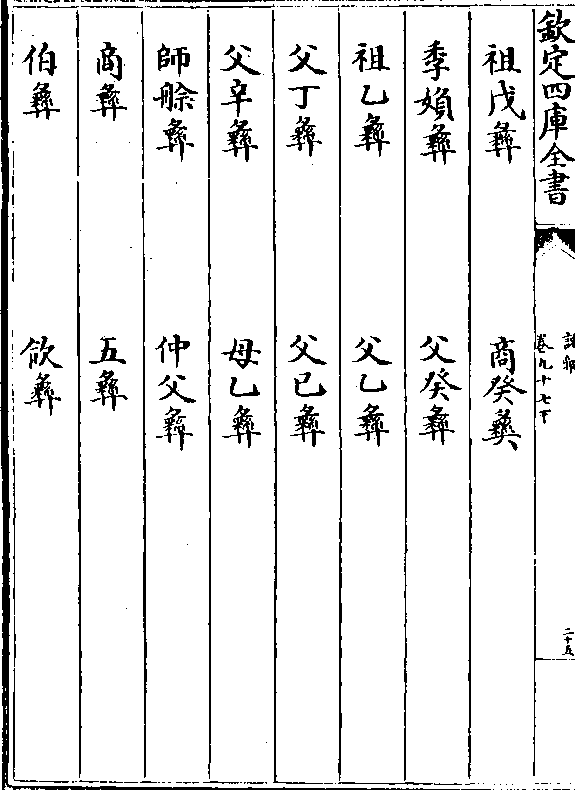 欽定四庫全書
卷九十七下
二十五
祖戊彝 商癸彝
季㛥彝 父癸彝
祖乙彝 父乙彝
父丁彝 父已彝
父辛彝 母乙彝
師艅彝 仲父彝
商彝 五彝
伯彝 飲彝